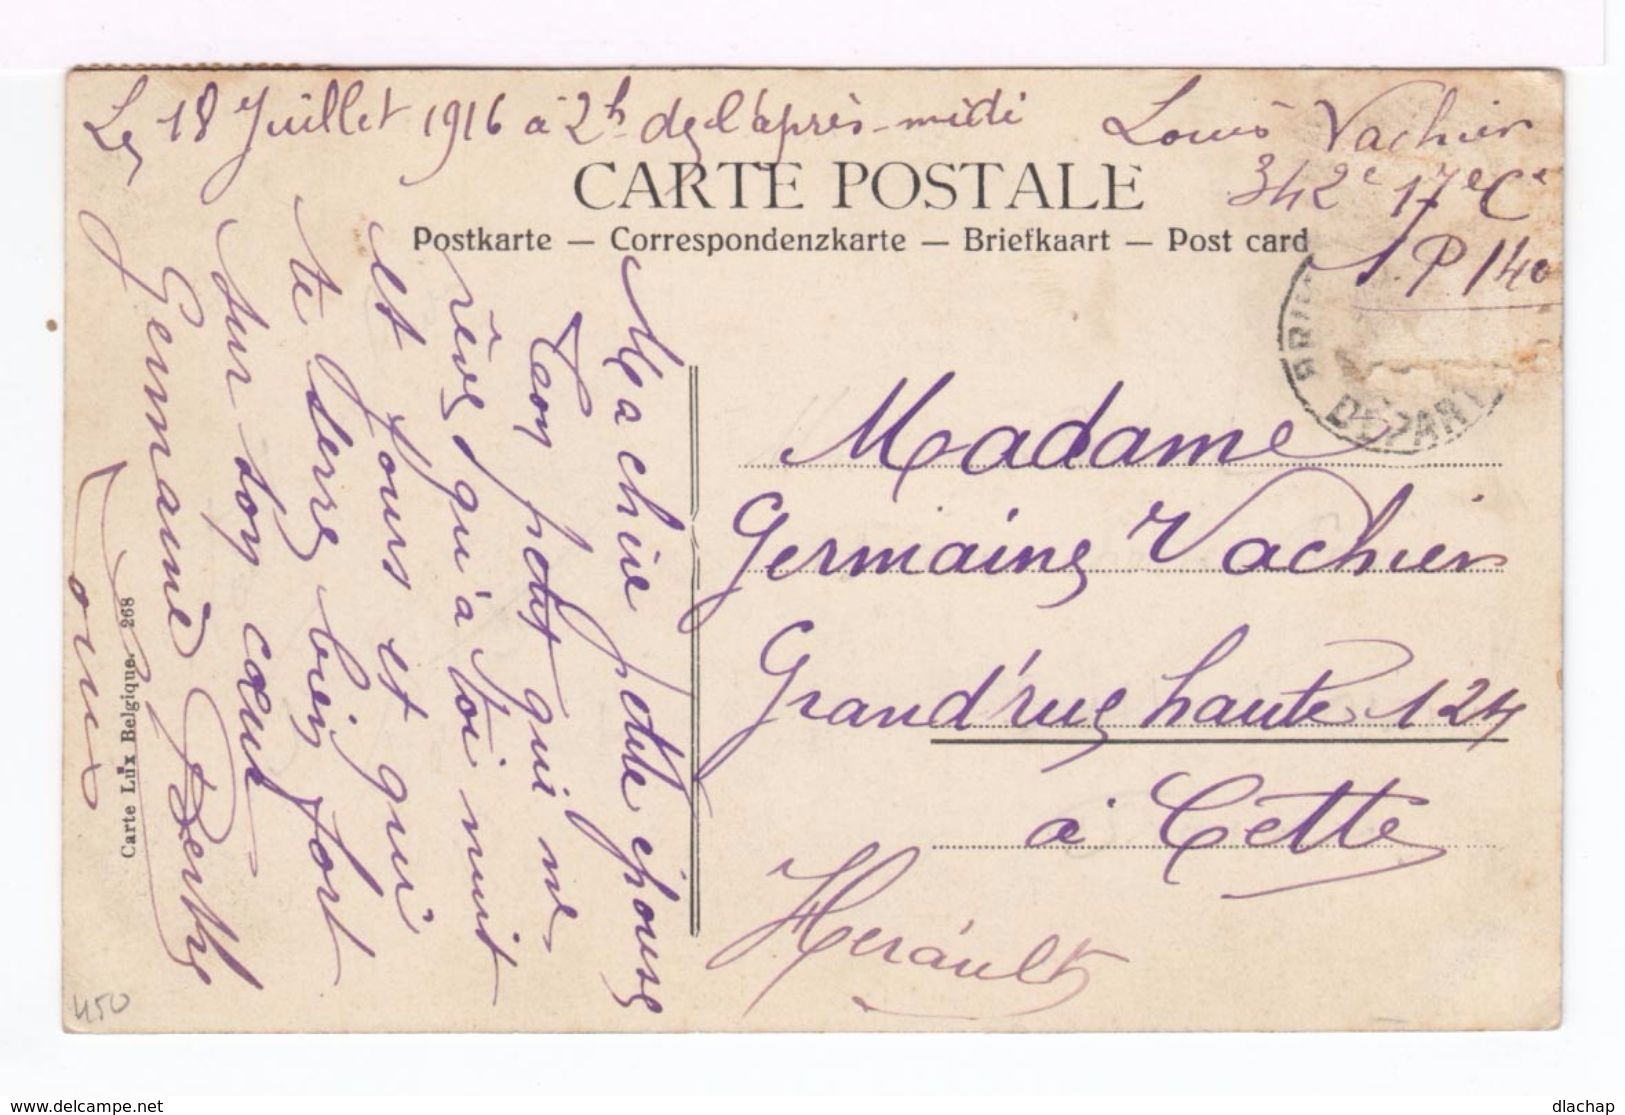 Le 18 Juillet 1916 à 2h de l'après-midi
Louis Vachier
342e 17e Cie
S. P. 140
CARTE POSTALE
Postkarte — Correspondenzkarte — Briefkaart — Post card
DÉPART
Ma chère petite épouse
Ton petit qui ne
rêve qu'à toi nuit
et jours et qui
te serre bien fort
sur ton cœur
Germaine Berthe
Louis
Madame
Germaine Vachier
Grand'rue haute 124
à Cette
Hérault
Carte Lux Belgique. 268
450
www.delcampe.net
dlachap